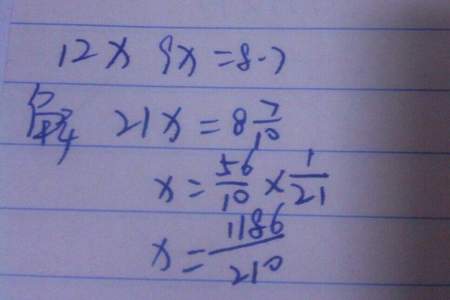 12x 9x=8.7
解 21x=8 7/10
x=56/10×1/21
x=1186/210